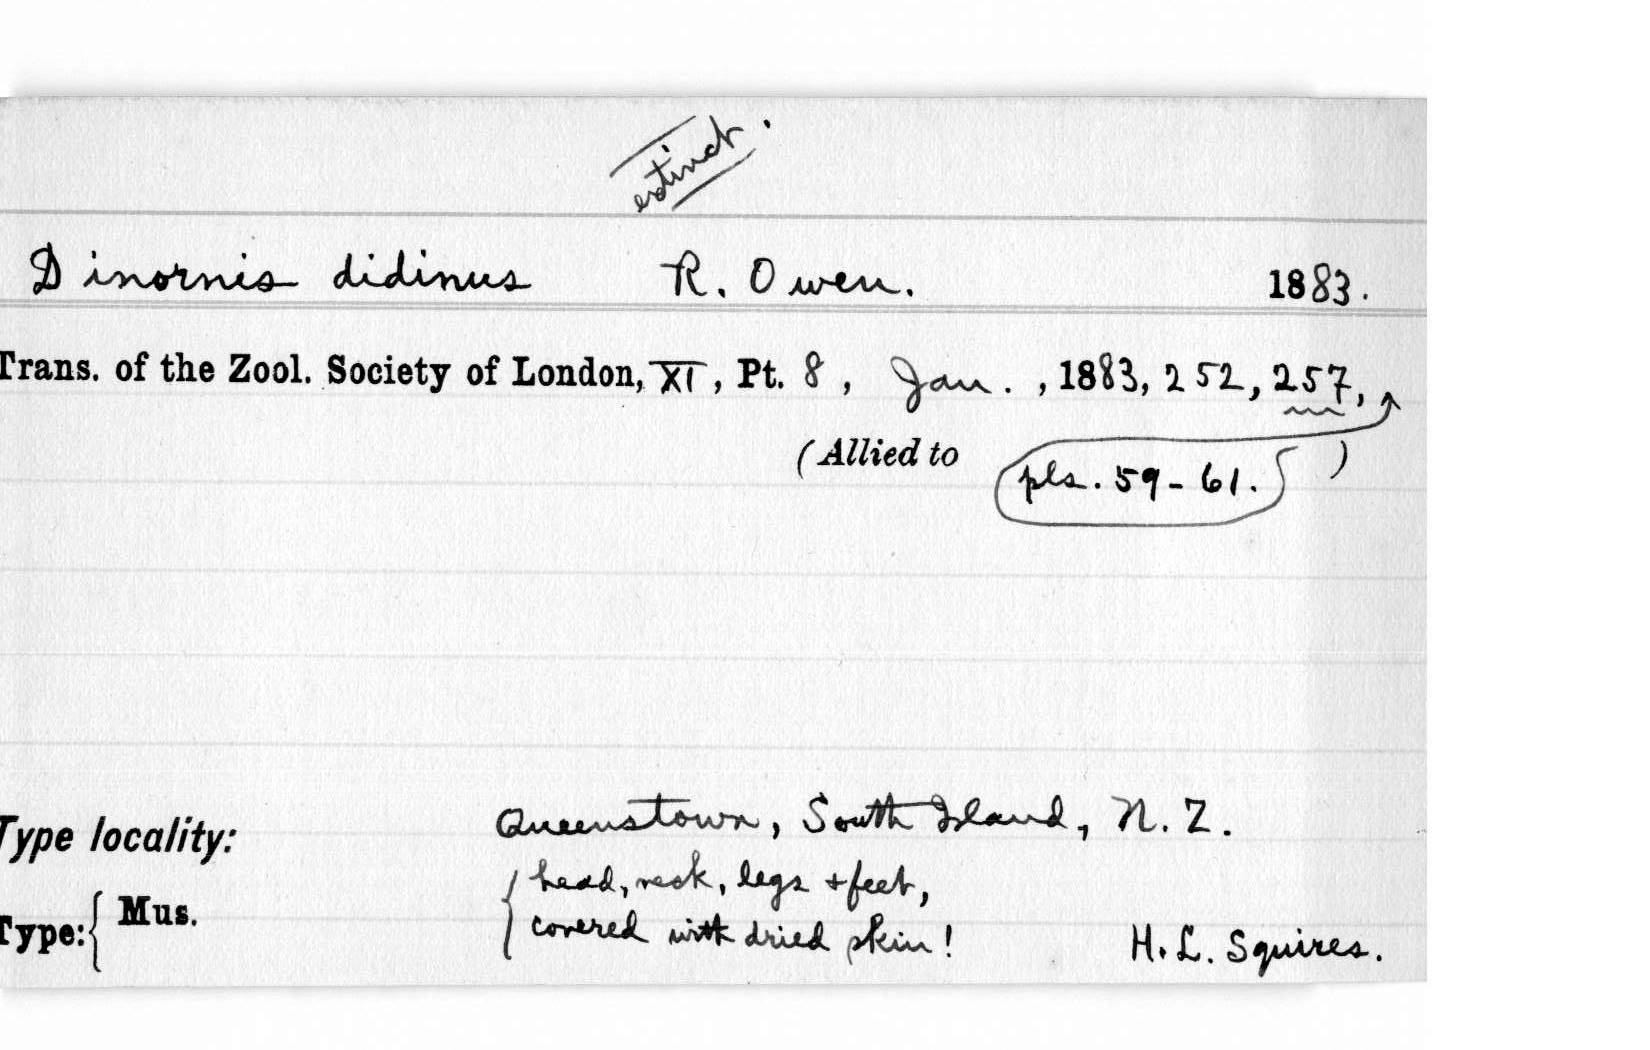 extinct.
Dinornis didinus R. Owen. 1883.
Trans. of the Zool. Society of London, XI, Pt. 8, Jan., 1883, 252, 257,
(Allied to pls. 59-61. )
Type locality: Queenstown, South Island, N. Z.
head, neck, legs + feet,
Type: { Mus. covered with dried skin! H. L. Squires.